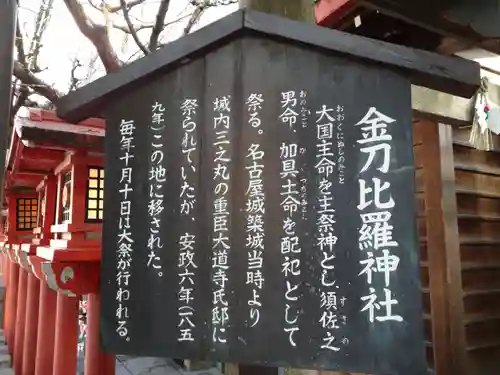 金刀比羅神社
大国主命を主祭神とし、須佐之
男命、加具土命を配祀として
祭る。名古屋城築城当時より
城内三之丸の重臣大道寺氏邸に
祭られていたが、安政六年(一八五
九年)この地に移された。
毎年十月十日は大祭が行われる。